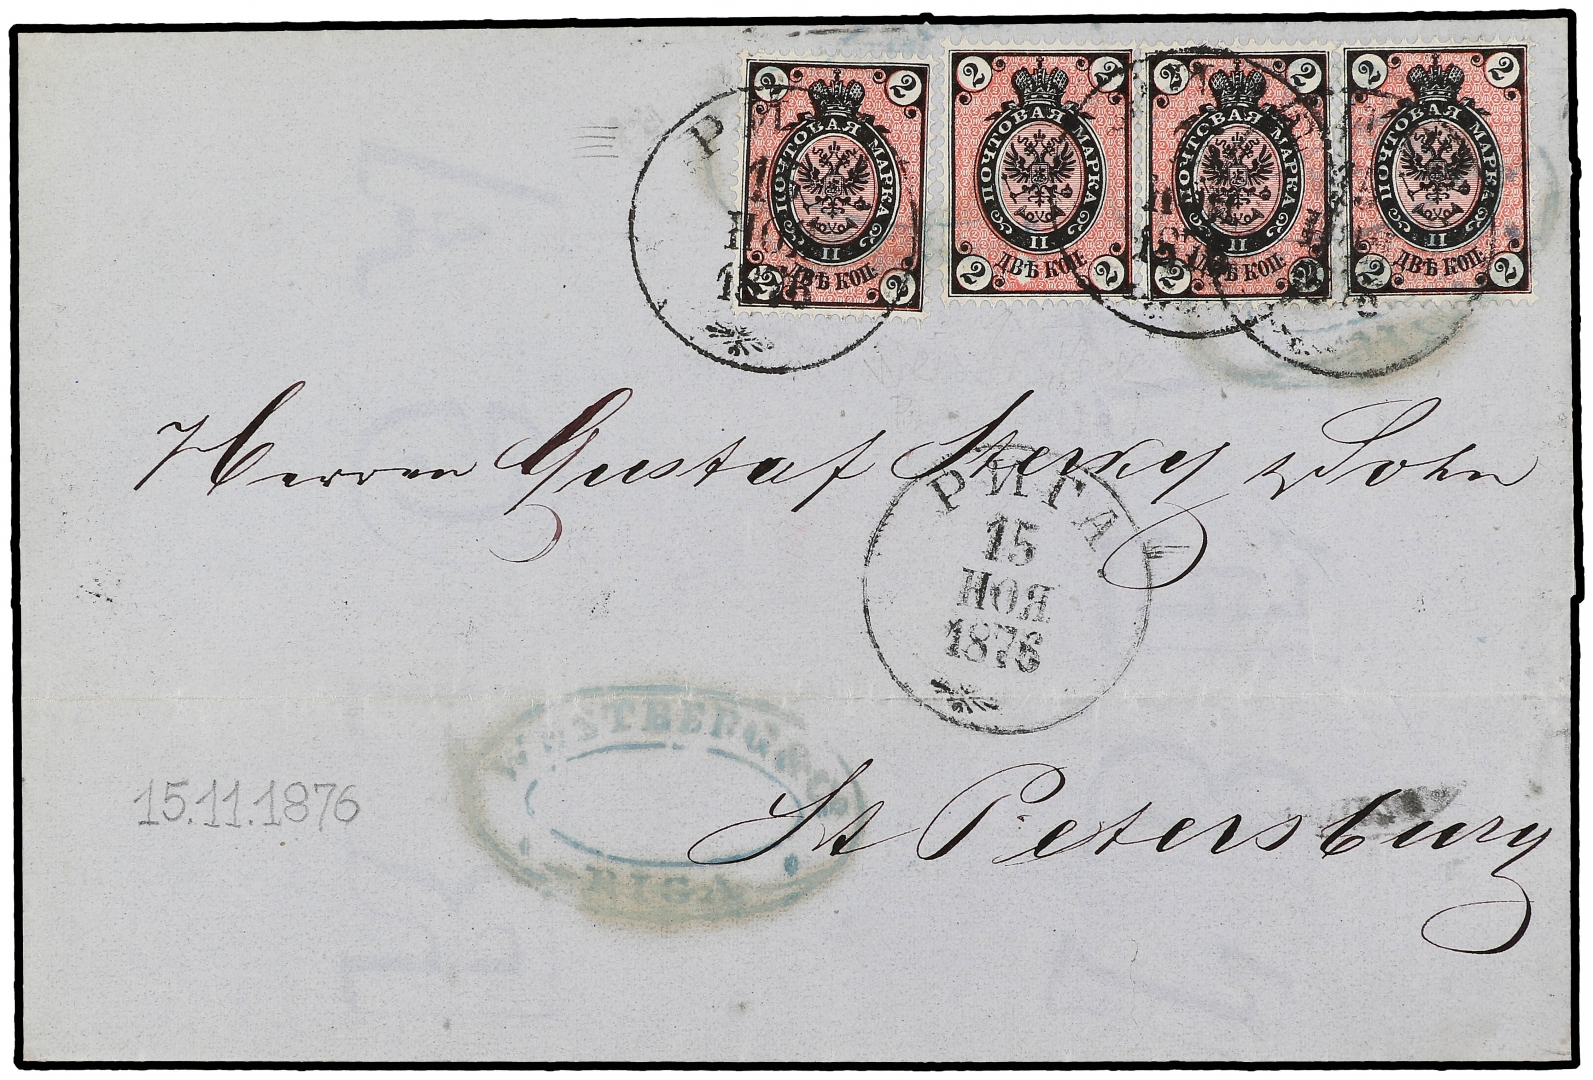 2 2 2 2 2 2 2 2
ПОЧТОВАЯ МАРКА ПОЧТОВАЯ МАРКА ПОЧТОВАЯ МАРКА ПОЧТОВАЯ МАРКА
II II II II
ДВѢ КОП. ДВѢ КОП. ДВѢ КОП. ДВѢ КОП.
2 2 2 2 2 2 2 2
Herren Gustaf Sterky & Sohn
РИГА
15
НОЯ
1876
WESTBERG & Co
RIGA
15.11.1876
St Petersburg